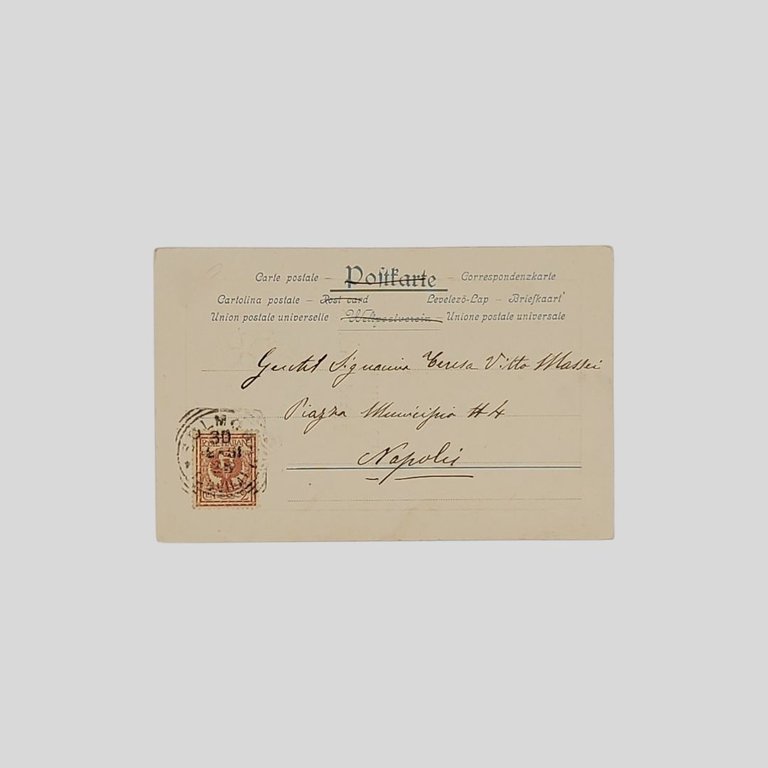 Carte postale – Postkarte – Correspondenzkarte
Cartolina postale – Post card Levelező-Lap – Briefkaart
Union postale universelle – Weltpostverein – Unione postale universale
Gentil Signorina Teresa Vitto Massei
Piazza Municipio # 4
Napoli
SULMO
30